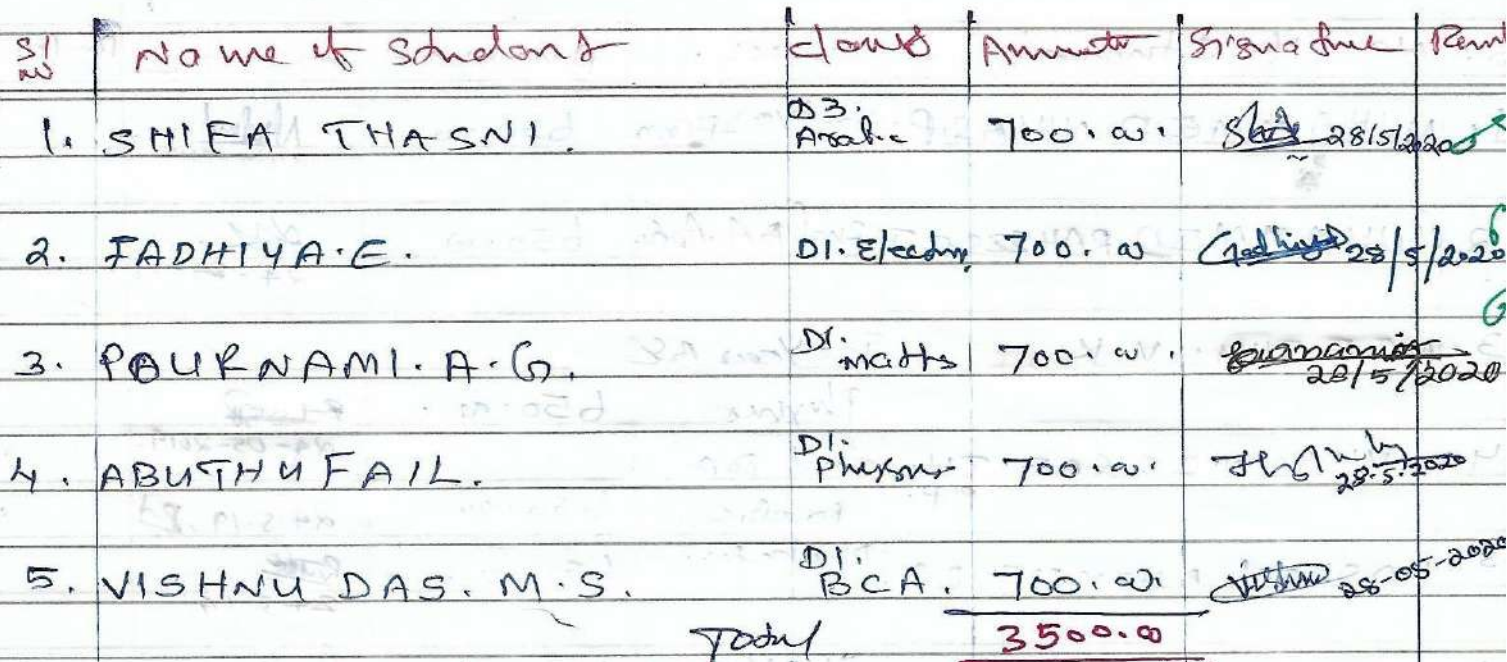 Sl No Name of Student Class Amount Signature Rem
D3.
1. SHIFA THASNI. Arabic 700.00. 28/5/2020
2. FADHIYA.E. D1. Electro 700.00 28/5/2020
D1.
3. POURNAMI.A.G. Maths 700.00.
28/5/2020
D1.
4. ABUTHUFAIL. Physics 700.00. 28.5.2020
D1.
5. VISHNU DAS. M.S. BCA. 700.00. Vishnu 28-05-2020
Total 3500.00